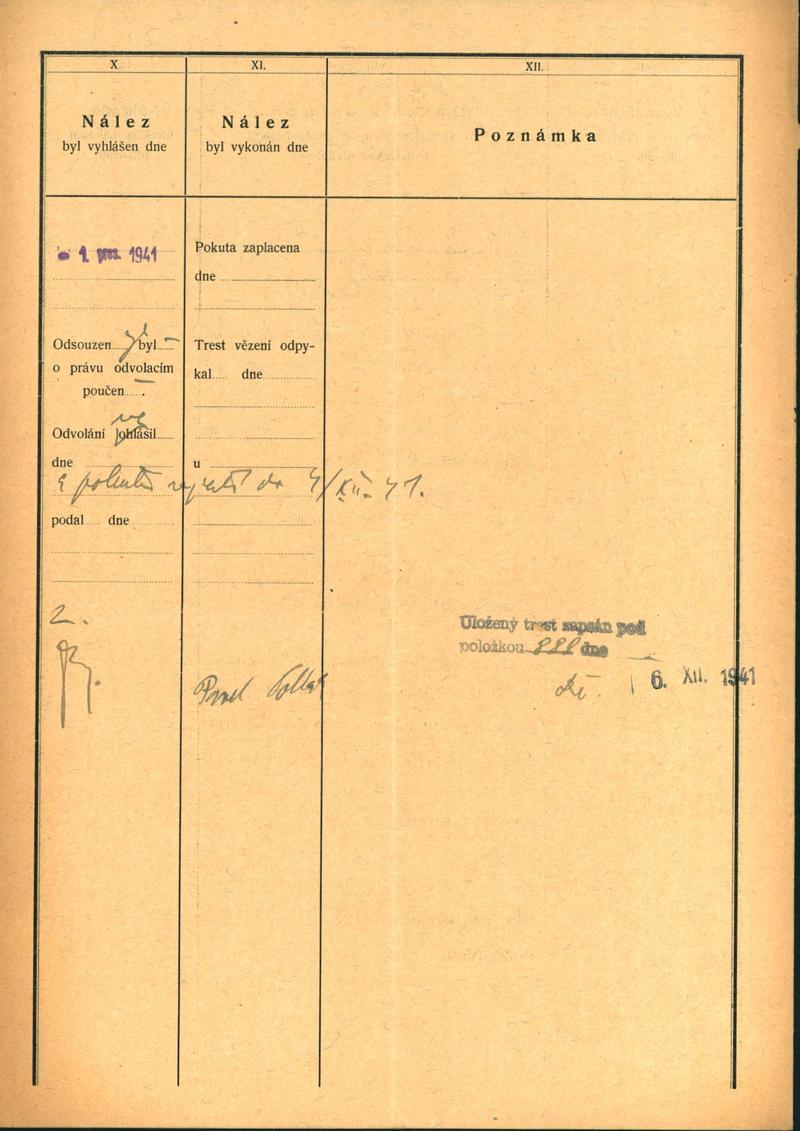 X
XI.
XII.
Nález
byl vyhlášen dne
Nález
byl vykonán dne
Poznámka
- 1. pros. 1941
Pokuta zaplacena
dne
Odsouzen ý byl
o právu odvolacím
poučen
Trest vězení odpy-
kal dne
Odvolání ohlásil
dne
u
a pokutu zaplatí do 4/XII. 41.
podal dne
2.
Pavel
Uložený trest zapsán pod
položkou dne
6. XII. 1941